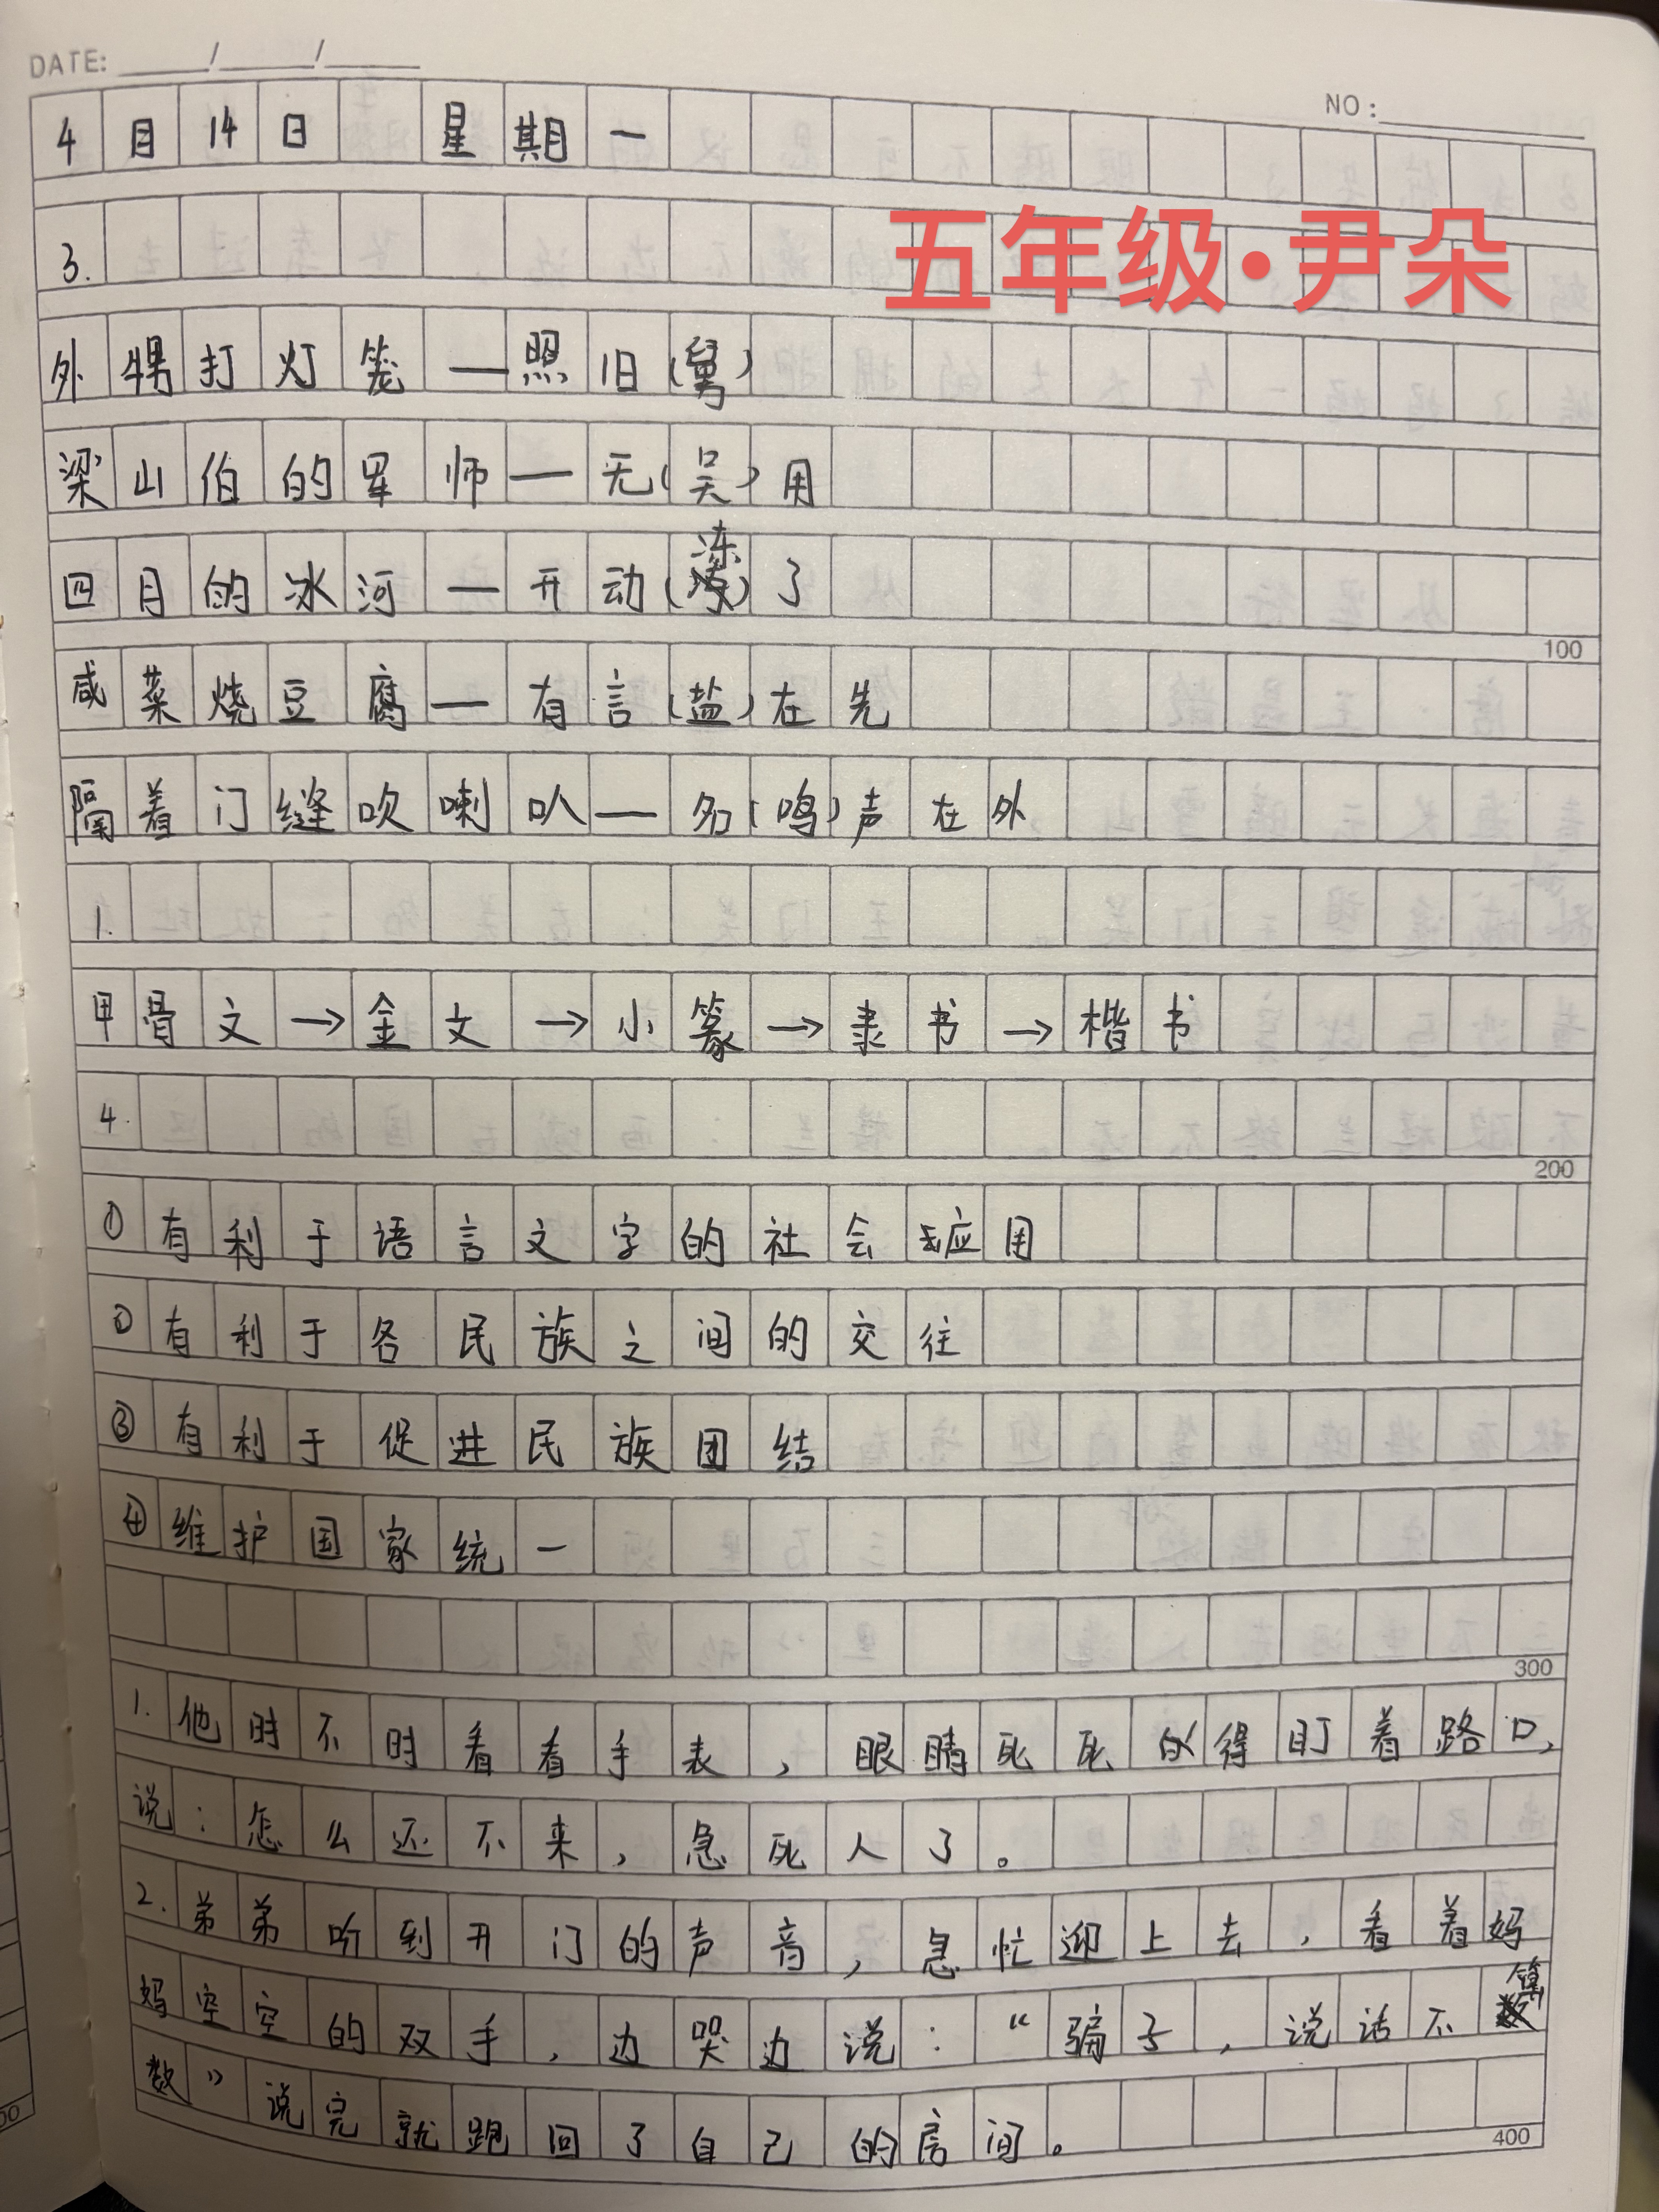 DATE: ____/____/____
NO:
4月14日 星期一
五年级·尹朵
3.
外甥打灯笼—照旧(舅)
梁山伯的军师—无(吴)用
四月的冰河—开动(冻)了
100
咸菜烧豆腐—有言(盐)在先
隔着门缝吹喇叭—名(鸣)声在外
1.
甲骨文→金文→小篆→隶书→楷书
4.
200
①有利于语言文字的社会应用
②有利于各民族之间的交往
③有利于促进民族团结
④维护国家统一
300
1.他时不时看看手表,眼睛死死的得盯着路口,
说:怎么还不来,急死人了。
2.弟弟听到开门的声音,急忙迎上去,看着妈
妈空空的双手,边哭边说:“骗子,说话不算
数”说完就跑回了自己的房间。
400